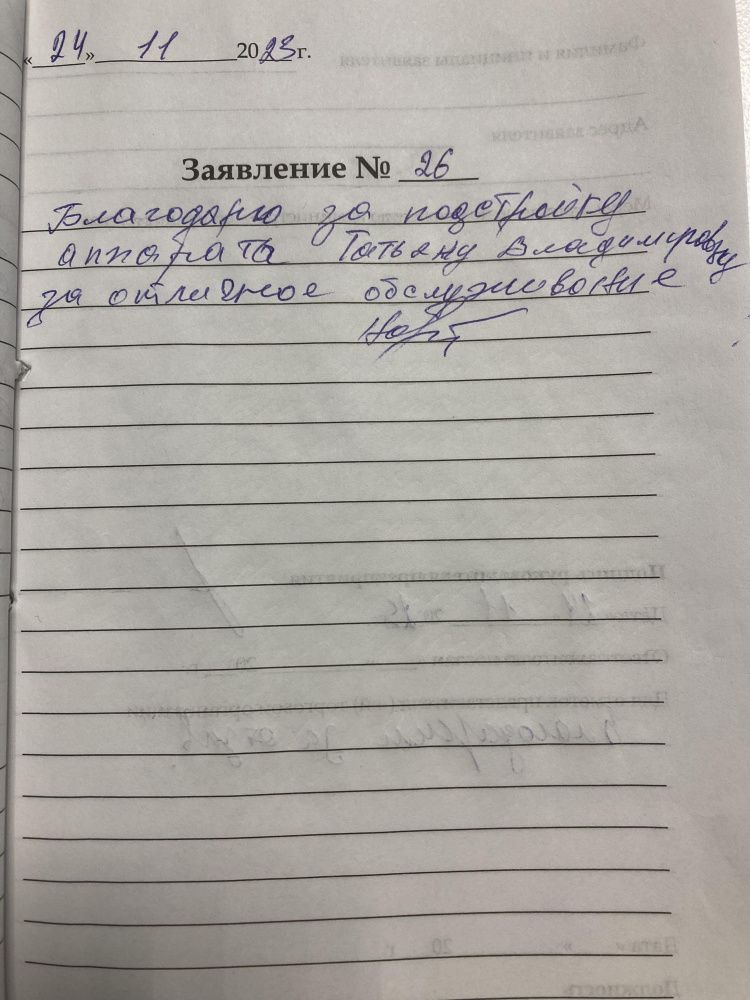 «24» 11 2023г.
Заявление № 26
Благодарю за подстройку
аппарата Татьяну Владимировну
за отличное обслуживание